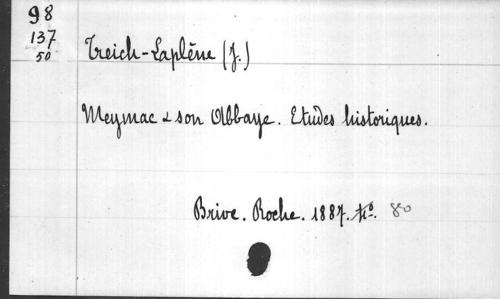 98
137
50
Treich-Laplène (J.)
Meymac & son Abbaye. Etudes historiques.
Brive. Roche. 1887. 8o